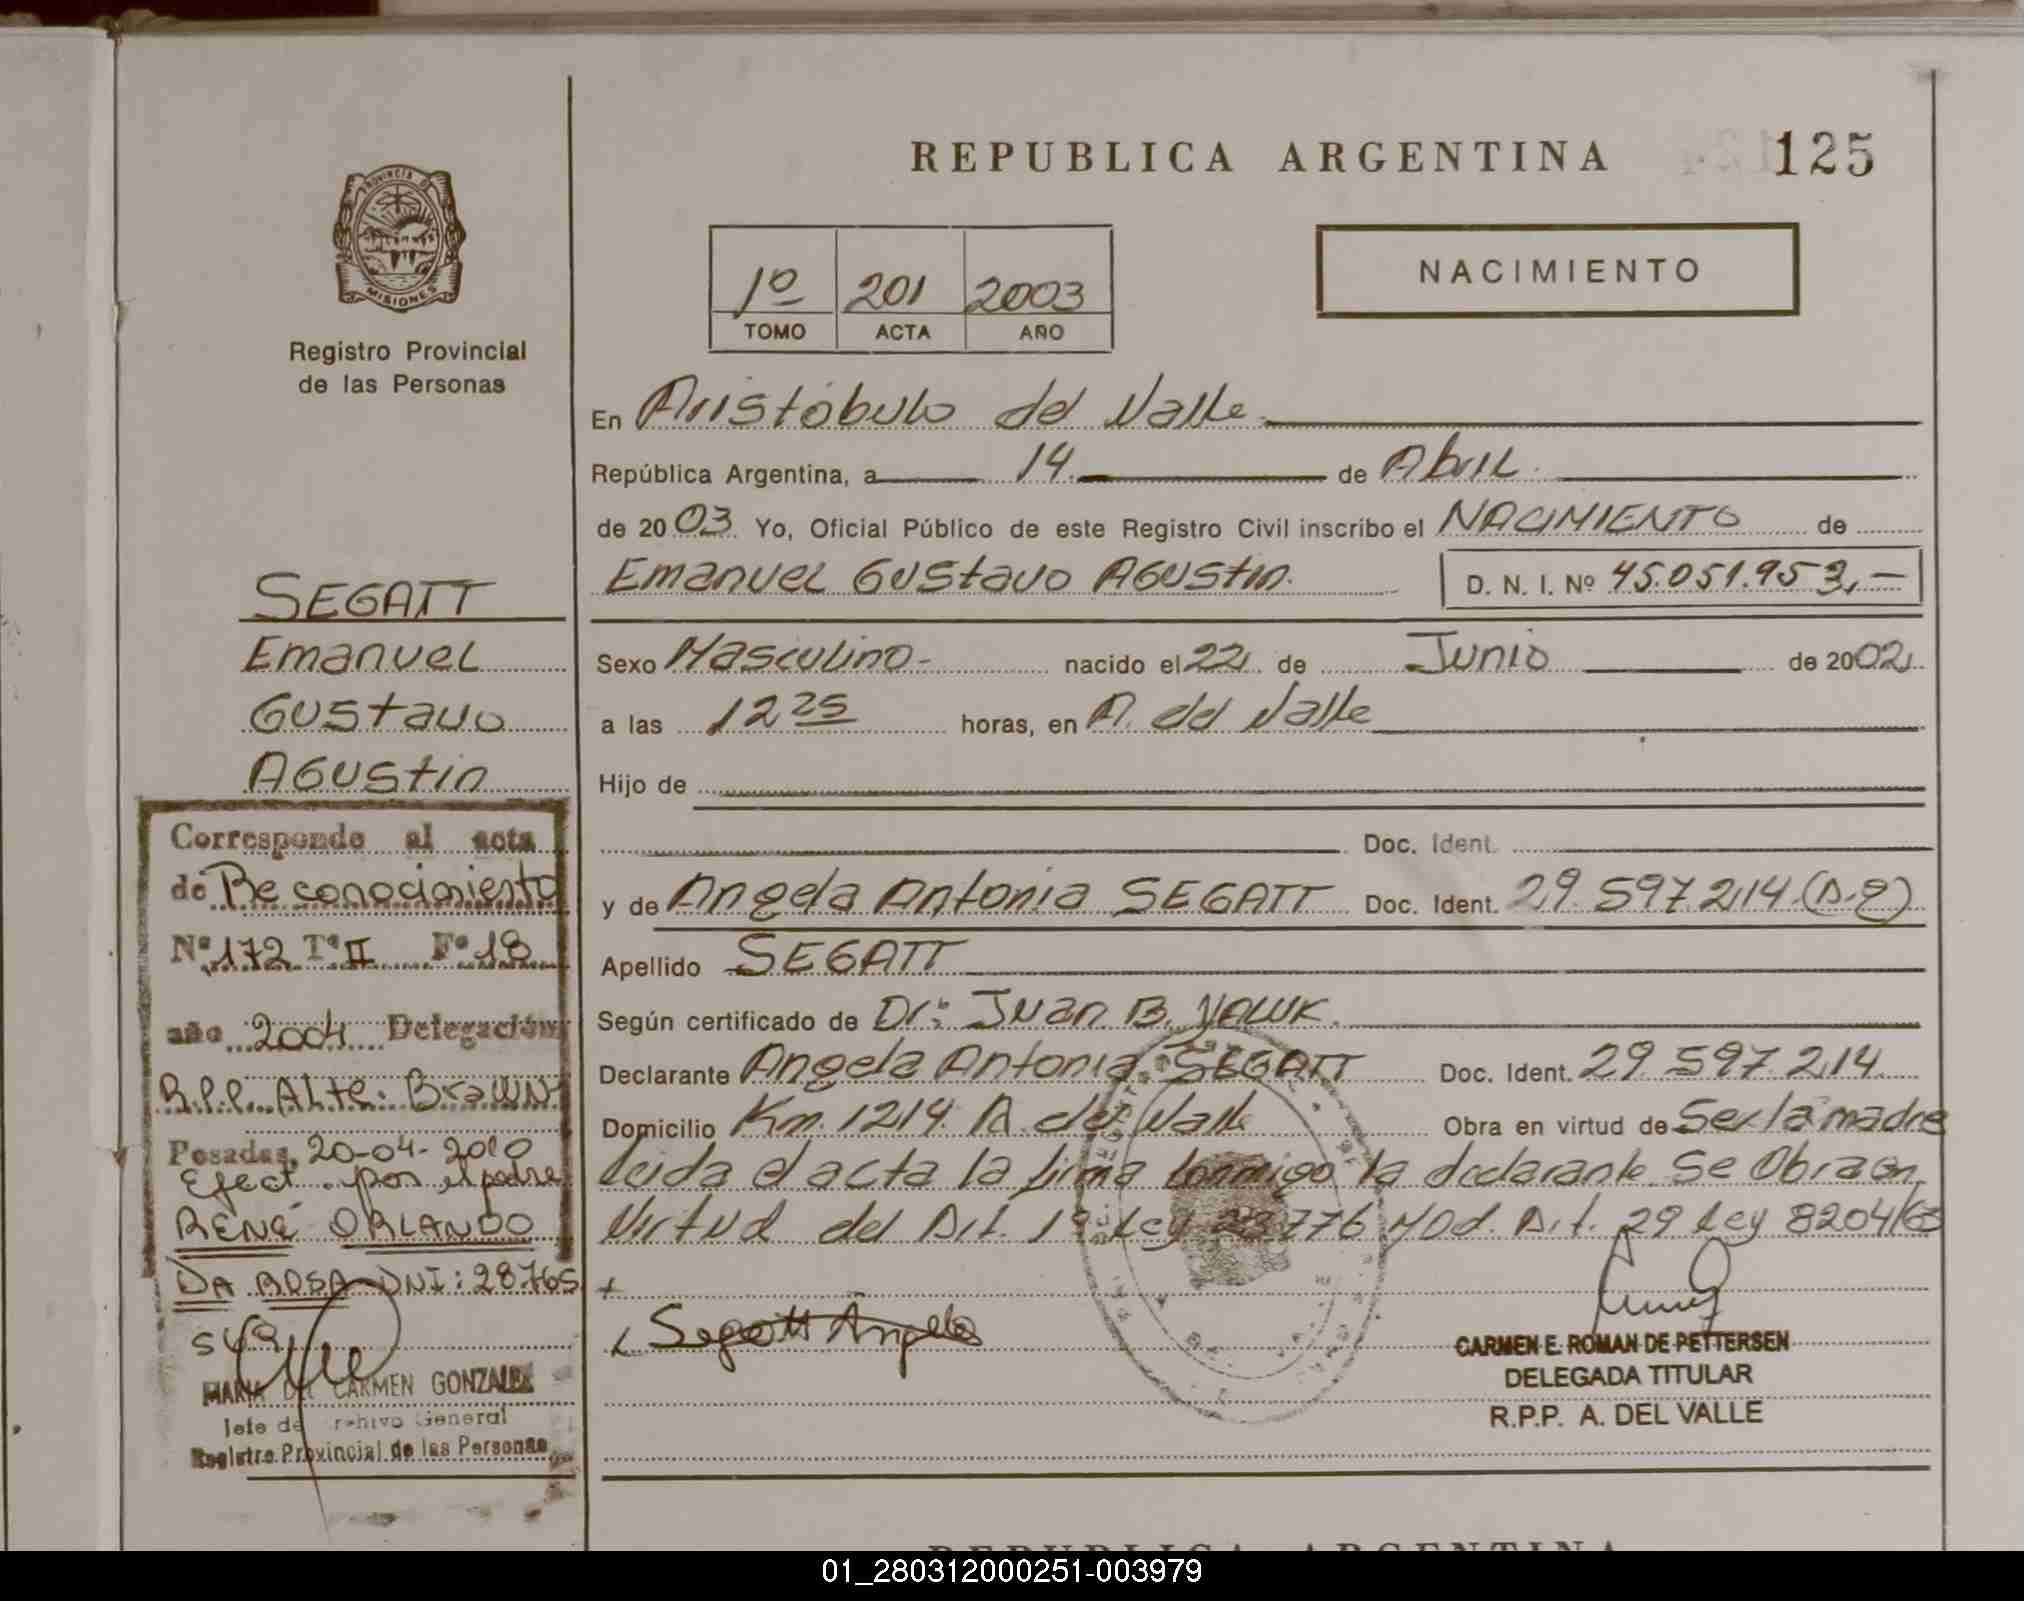 REPUBLICA ARGENTINA 125
PROVINCIA DE
MISIONES
Registro Provincial
de las Personas
1º 201 2003
TOMO ACTA AÑO
NACIMIENTO
En Aristóbulo del Valle
República Argentina, a 14 de Abril
de 2003 Yo, Oficial Público de este Registro Civil inscribo el NACIMIENTO de
Emanuel Gustavo Agustin. D. N. I. Nº 45.051.953,-
Sexo Masculino- nacido el 22 de Junio de 2002
a las 12 25 horas, en A. del Valle
Hijo de
Doc. Ident.
y de Angela Antonia SEGATT Doc. Ident. 29.597.214
Apellido SEGATT
Según certificado de Dr: Juan B.
Declarante Angela Antonia SEGATT Doc. Ident. 29.597.214
Domicilio Km. 1214 A. del Valle Obra en virtud de Ser la madre
leida el acta la firma conmigo la declarante. Se Obra en
Virtud del Art. 1º Ley 23776 Mod. Art. 29 Ley 8204/63
Segatt Angela
CARMEN E. ROMAN DE PETTERSEN
DELEGADA TITULAR
R.P.P. A. DEL VALLE
SEGATT
Emanuel
Gustavo
Agustin
Corresponde al acta
de Reconocimiento
Nº 172 Tº II Fº 18
año 2004 Delegación
R.P.P. Alte. Brown
Posadas, 20-04-2010
Efect. por el padre
RENÉ ORLANDO
DA ROSA DNI: 28765
549
MARIA DEL CARMEN GONZALEZ
Jefe de Archivo General
Registro Provincial de las Personas
REPUBLICA ARGENTINA
01_280312000251-003979